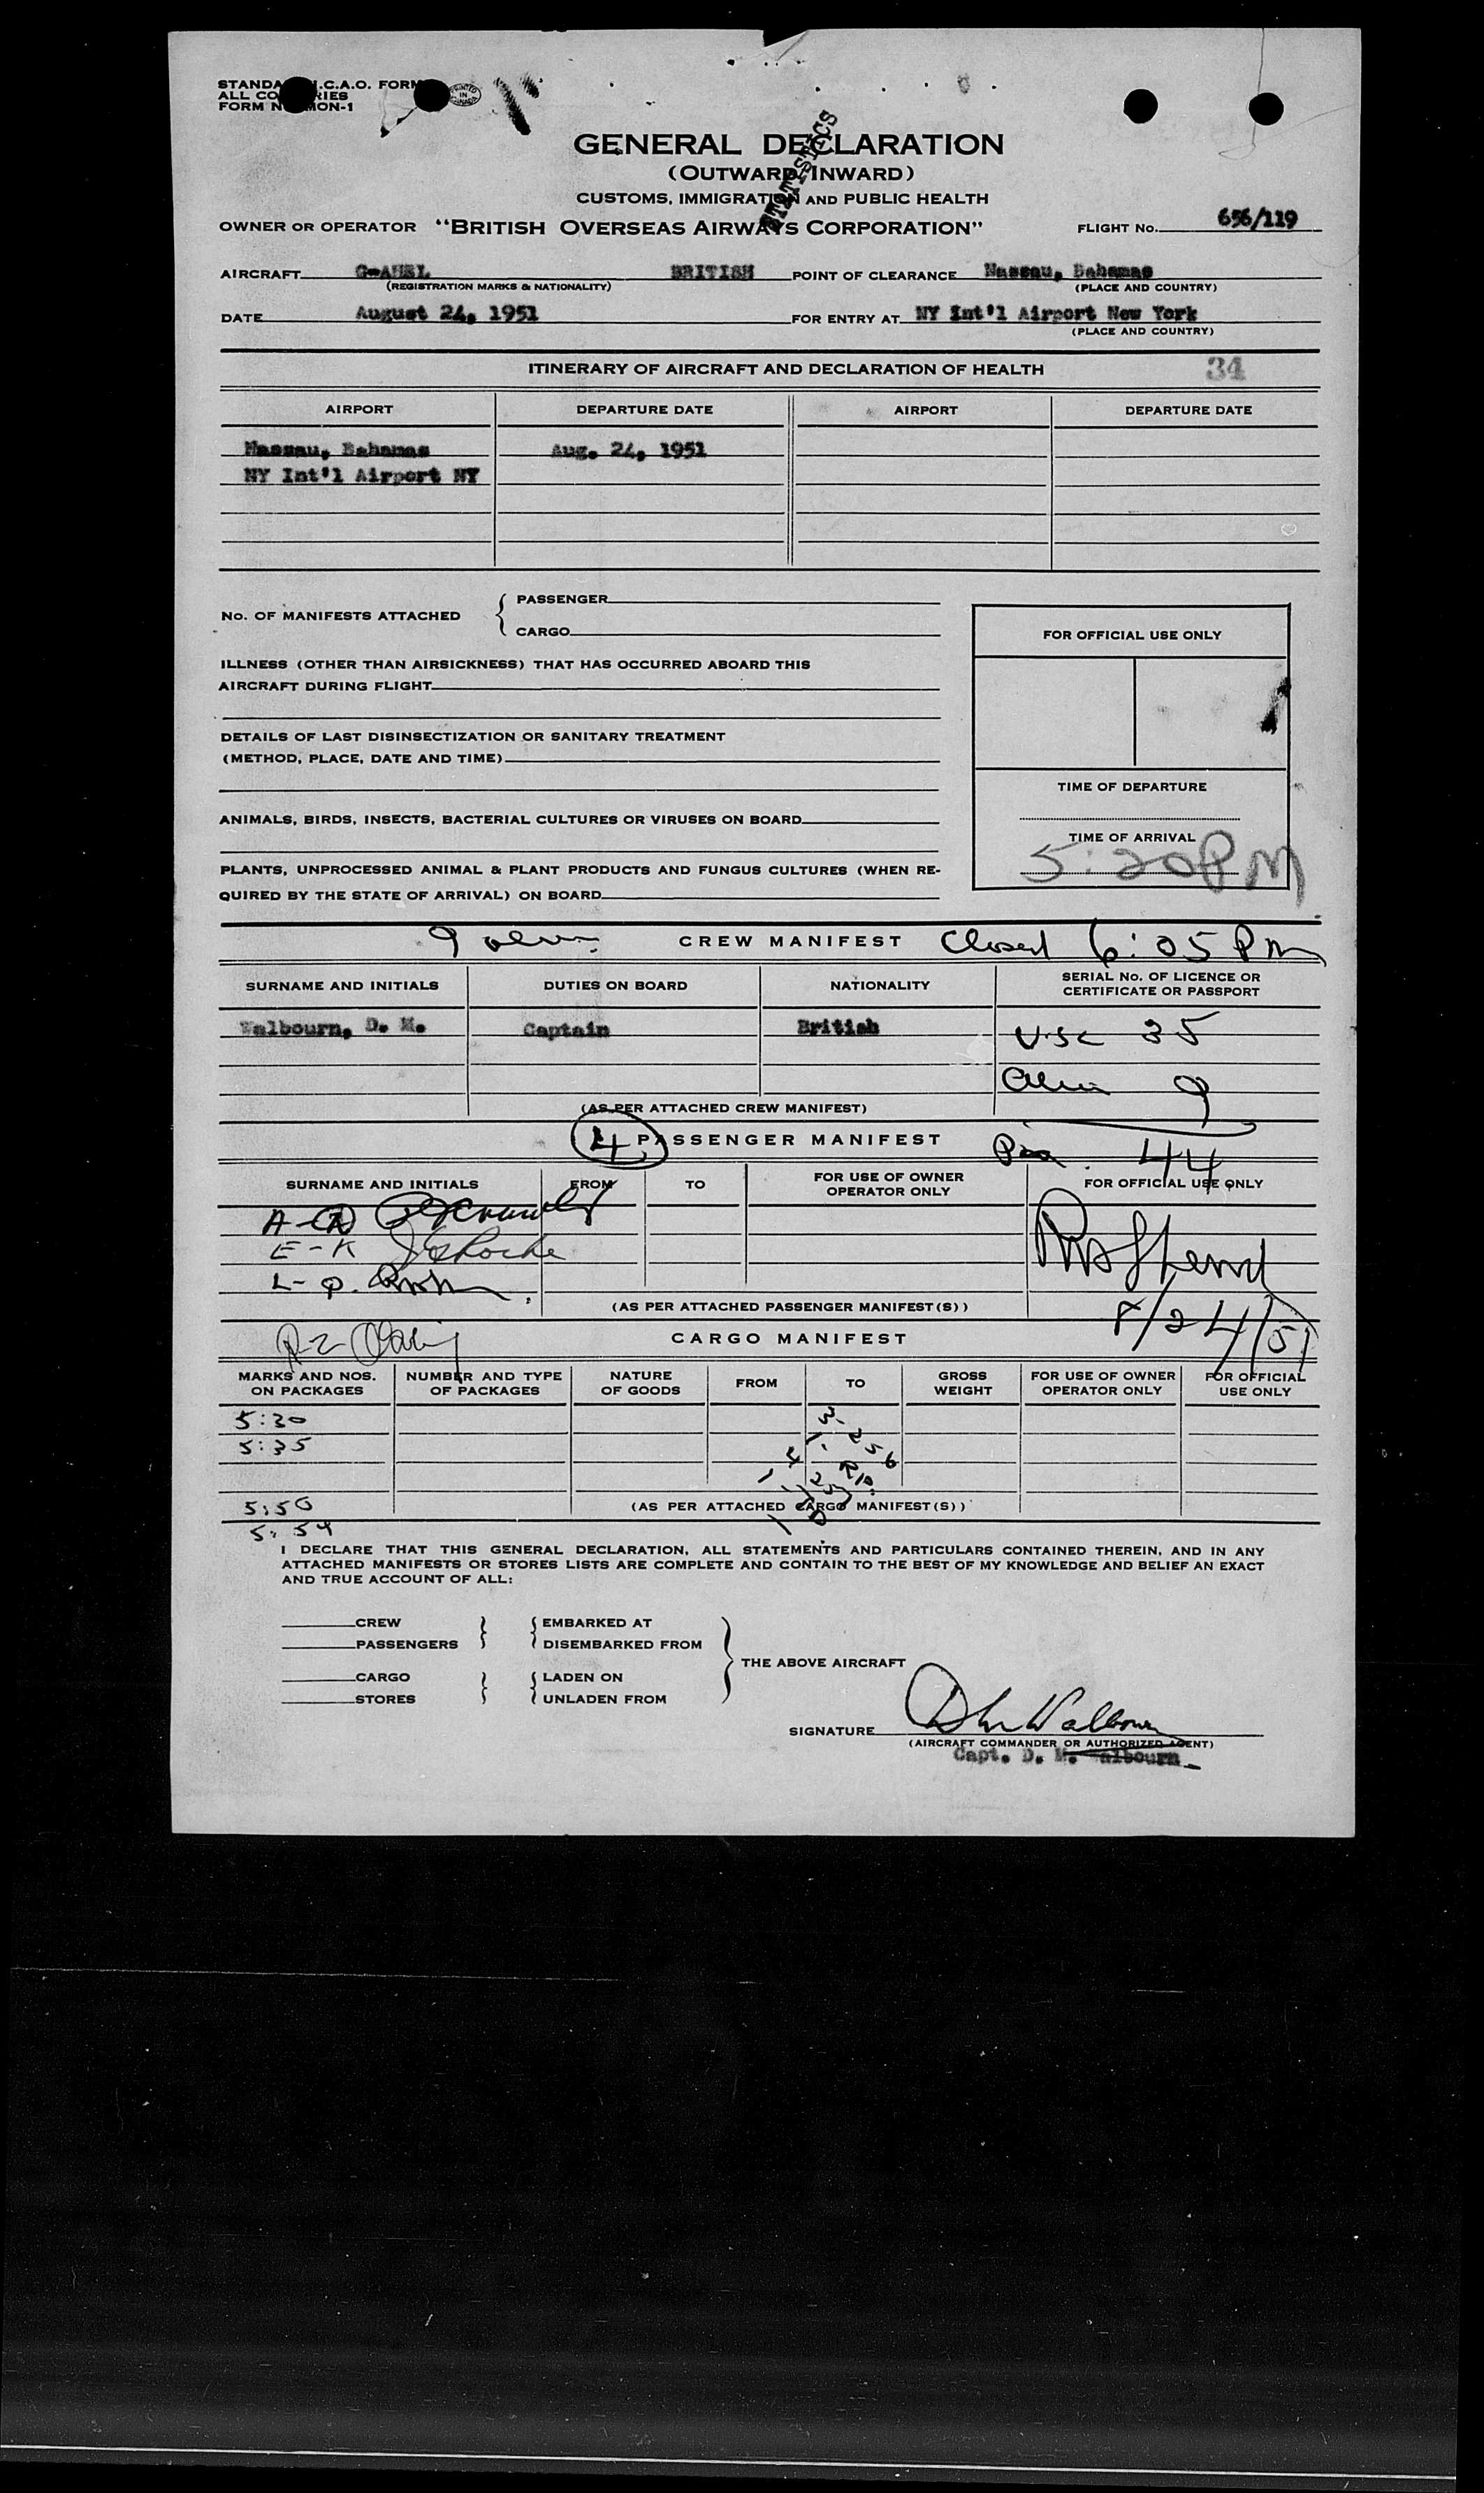 STANDA I.C.A.O. FORM
ALL CO RIES
FORM N MON-1
PRINTED IN CANADA
STATISTICS
GENERAL DECLARATION
(OUTWARD INWARD)
CUSTOMS, IMMIGRATION AND PUBLIC HEALTH
OWNER OR OPERATOR "BRITISH OVERSEAS AIRWAYS CORPORATION" FLIGHT No. 656/119
AIRCRAFT BRITISH POINT OF CLEARANCE Nassau, Bahamas
(REGISTRATION MARKS & NATIONALITY) (PLACE AND COUNTRY)
DATE August 24, 1951 FOR ENTRY AT NY Int'l Airport New York
(PLACE AND COUNTRY)
ITINERARY OF AIRCRAFT AND DECLARATION OF HEALTH 34
AIRPORT DEPARTURE DATE AIRPORT DEPARTURE DATE
Nassau, Bahamas Aug. 24, 1951
NY Int'l Airport NY
No. OF MANIFESTS ATTACHED { PASSENGER
CARGO
FOR OFFICIAL USE ONLY
ILLNESS (OTHER THAN AIRSICKNESS) THAT HAS OCCURRED ABOARD THIS
AIRCRAFT DURING FLIGHT
DETAILS OF LAST DISINSECTIZATION OR SANITARY TREATMENT
(METHOD, PLACE, DATE AND TIME)
TIME OF DEPARTURE
ANIMALS, BIRDS, INSECTS, BACTERIAL CULTURES OR VIRUSES ON BOARD
TIME OF ARRIVAL
5:20 PM
PLANTS, UNPROCESSED ANIMAL & PLANT PRODUCTS AND FUNGUS CULTURES (WHEN RE-
QUIRED BY THE STATE OF ARRIVAL) ON BOARD
9 CREW MANIFEST Closed 6:05 PM
SURNAME AND INITIALS DUTIES ON BOARD NATIONALITY SERIAL No. OF LICENCE OR
CERTIFICATE OR PASSPORT
Walbourn, D. M. Captain British USC 35
Alien 9
(AS PER ATTACHED CREW MANIFEST)
4 PASSENGER MANIFEST 44
SURNAME AND INITIALS FROM TO FOR USE OF OWNER
OPERATOR ONLY
FOR OFFICIAL USE ONLY
A-D
E-K
L-
(AS PER ATTACHED PASSENGER MANIFEST(S))
8/24/51
R-Z
CARGO MANIFEST
MARKS AND NOS.
ON PACKAGES
NUMBER AND TYPE
OF PACKAGES
NATURE
OF GOODS
FROM TO GROSS
WEIGHT
FOR USE OF OWNER
OPERATOR ONLY
FOR OFFICIAL
USE ONLY
5:30
5:35
5:50
(AS PER ATTACHED CARGO MANIFEST(S))
5:54
I DECLARE THAT THIS GENERAL DECLARATION, ALL STATEMENTS AND PARTICULARS CONTAINED THEREIN, AND IN ANY
ATTACHED MANIFESTS OR STORES LISTS ARE COMPLETE AND CONTAIN TO THE BEST OF MY KNOWLEDGE AND BELIEF AN EXACT
AND TRUE ACCOUNT OF ALL:
CREW } { EMBARKED AT
PASSENGERS } { DISEMBARKED FROM
THE ABOVE AIRCRAFT
CARGO } { LADEN ON
STORES } { UNLADEN FROM
SIGNATURE D M Walbourn
(AIRCRAFT COMMANDER OR AUTHORIZED AGENT)
Capt. D. M. Walbourn